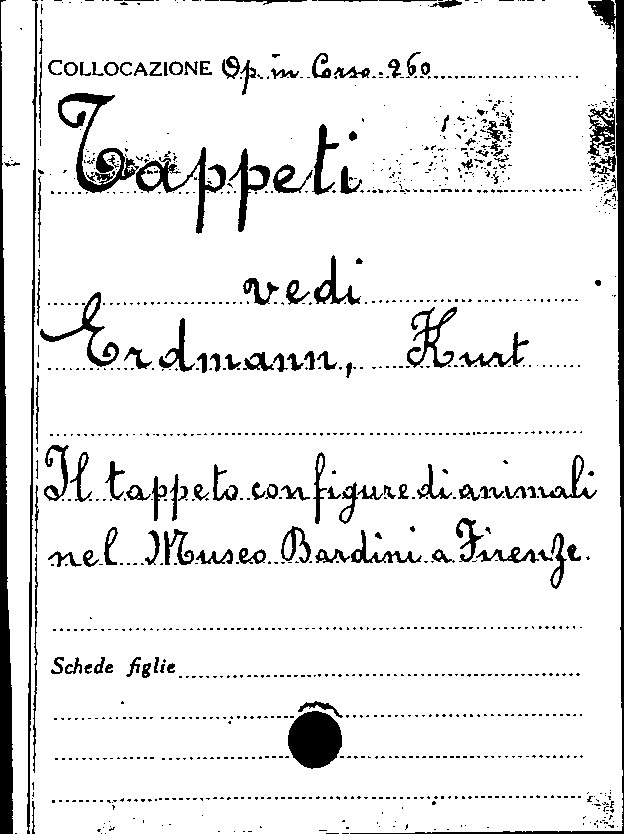 COLLOCAZIONE Op. in Corso. 260
Tappeti
vedi
Erdmann, Kurt
Il tappeto con figure di animali
nel Museo Bardini a Firenze.
Schede figlie